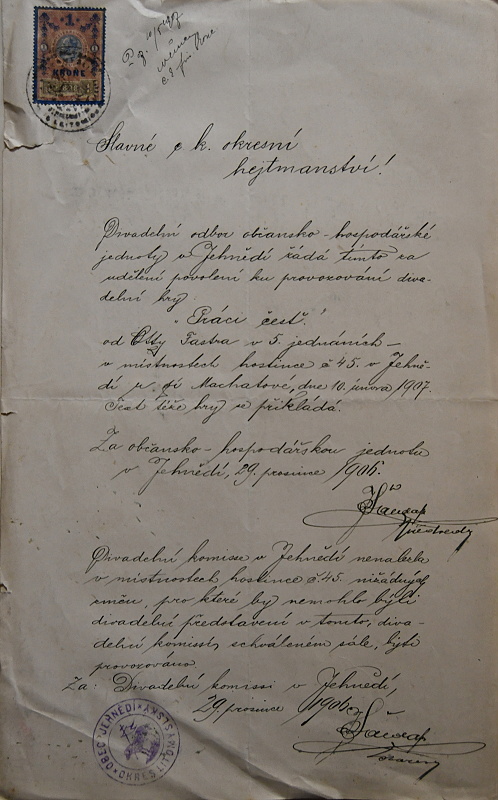 1
KRONE
Slavné c k. okresní
hejtmanství!
Divadelní odbor občansko-hospodářské
jednoty v Jehnědí žádá tímto za
udělení povolení ku provozování diva-
delní hry
"Práci čest!"
od Otty Fastra v 5. jednáních -
v místnostech hostince č 45. v Jehně-
dí u pí Machatové, dne 10. února 1907.
Text této hry se přikládá.
Za občansko-hospodářskou jednotu
v Jehnědí, 29. prosince 1906.
Divadelní komisse v Jehnědí nenalezla
v místnostech hostince č. 45. nižádných
změn, pro které by nemohlo býti
divadelní představení v tomto, diva-
delní komissí, schváleném sále, býti
provozováno.
Za: Divadelní komissi v Jehnědí,
29. prosince 1906.
OBEC JEHNĚDÍ
OKRES